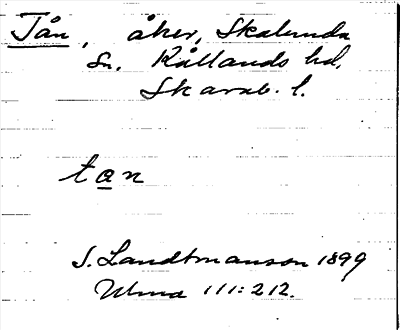 Tån, åker, Skalunda
Sn. Kållands hd.
Skarab. l.
tan
S. Landtmanson 1899
Ulma 111:212.